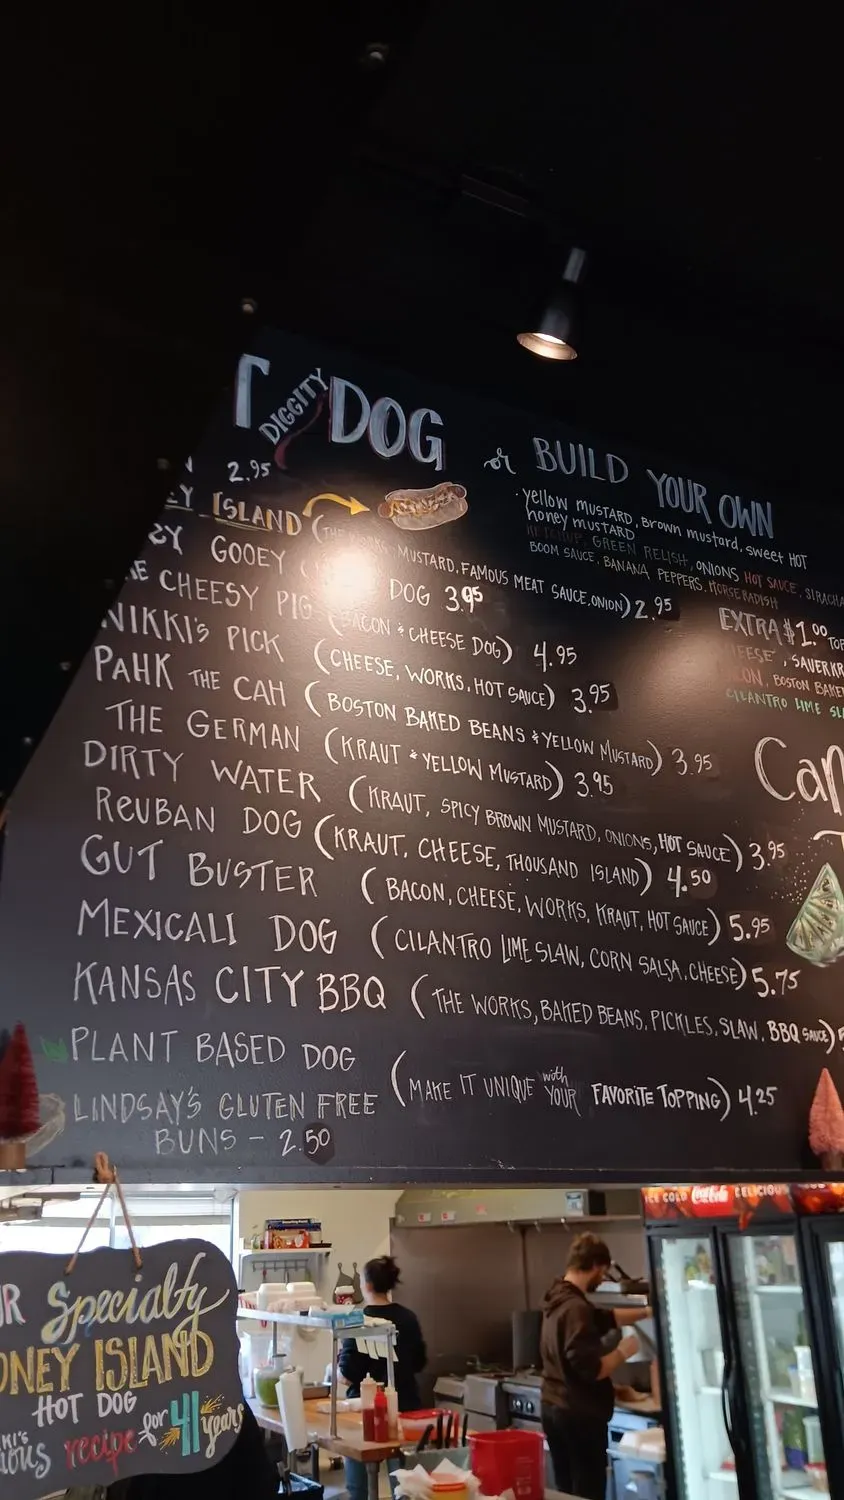 DIGGITY DOG or BUILD YOUR OWN
2.95
yellow mustard, brown mustard, sweet hot
honey mustard
KETCHUP, GREEN RELISH, ONIONS HOT SAUCE, SIRACHA
BOOM SAUCE, BANANA PEPPERS, HORSERADISH
EY ISLAND (THE WORKS, MUSTARD, FAMOUS MEAT SAUCE, ONION) 2.95
GOOEY DOG 3.95
EXTRA $1.00 TOP
EESE, SAUERKR
CON, BOSTON BAKE
CILANTRO LIME SL
E CHEESY PIG (BACON & CHEESE DOG) 4.95
NIKKI'S PICK (CHEESE, WORKS, HOT SAUCE) 3.95
PAHK THE CAH (BOSTON BAKED BEANS & YELLOW MUSTARD) 3.95
THE GERMAN (KRAUT & YELLOW MUSTARD) 3.95
Can
DIRTY WATER (KRAUT, SPICY BROWN MUSTARD, ONIONS, HOT SAUCE) 3.95
REUBAN DOG (KRAUT, CHEESE, THOUSAND ISLAND) 4.50
GUT BUSTER (BACON, CHEESE, WORKS, KRAUT, HOT SAUCE) 5.95
MEXICALI DOG (CILANTRO LIME SLAW, CORN SALSA, CHEESE) 5.75
KANSAS CITY BBQ (THE WORKS, BAKED BEANS, PICKLES, SLAW, BBQ SAUCE)
PLANT BASED DOG (MAKE IT UNIQUE with YOUR FAVORITE TOPPING) 4.25
LINDSAY'S GLUTEN FREE
BUNS - 2.50
ICE COLD Coca-Cola DELICIOUS
UR Specialty
ONEY ISLAND
HOT DOG
KKI'S
IOUS recipe for 41 years